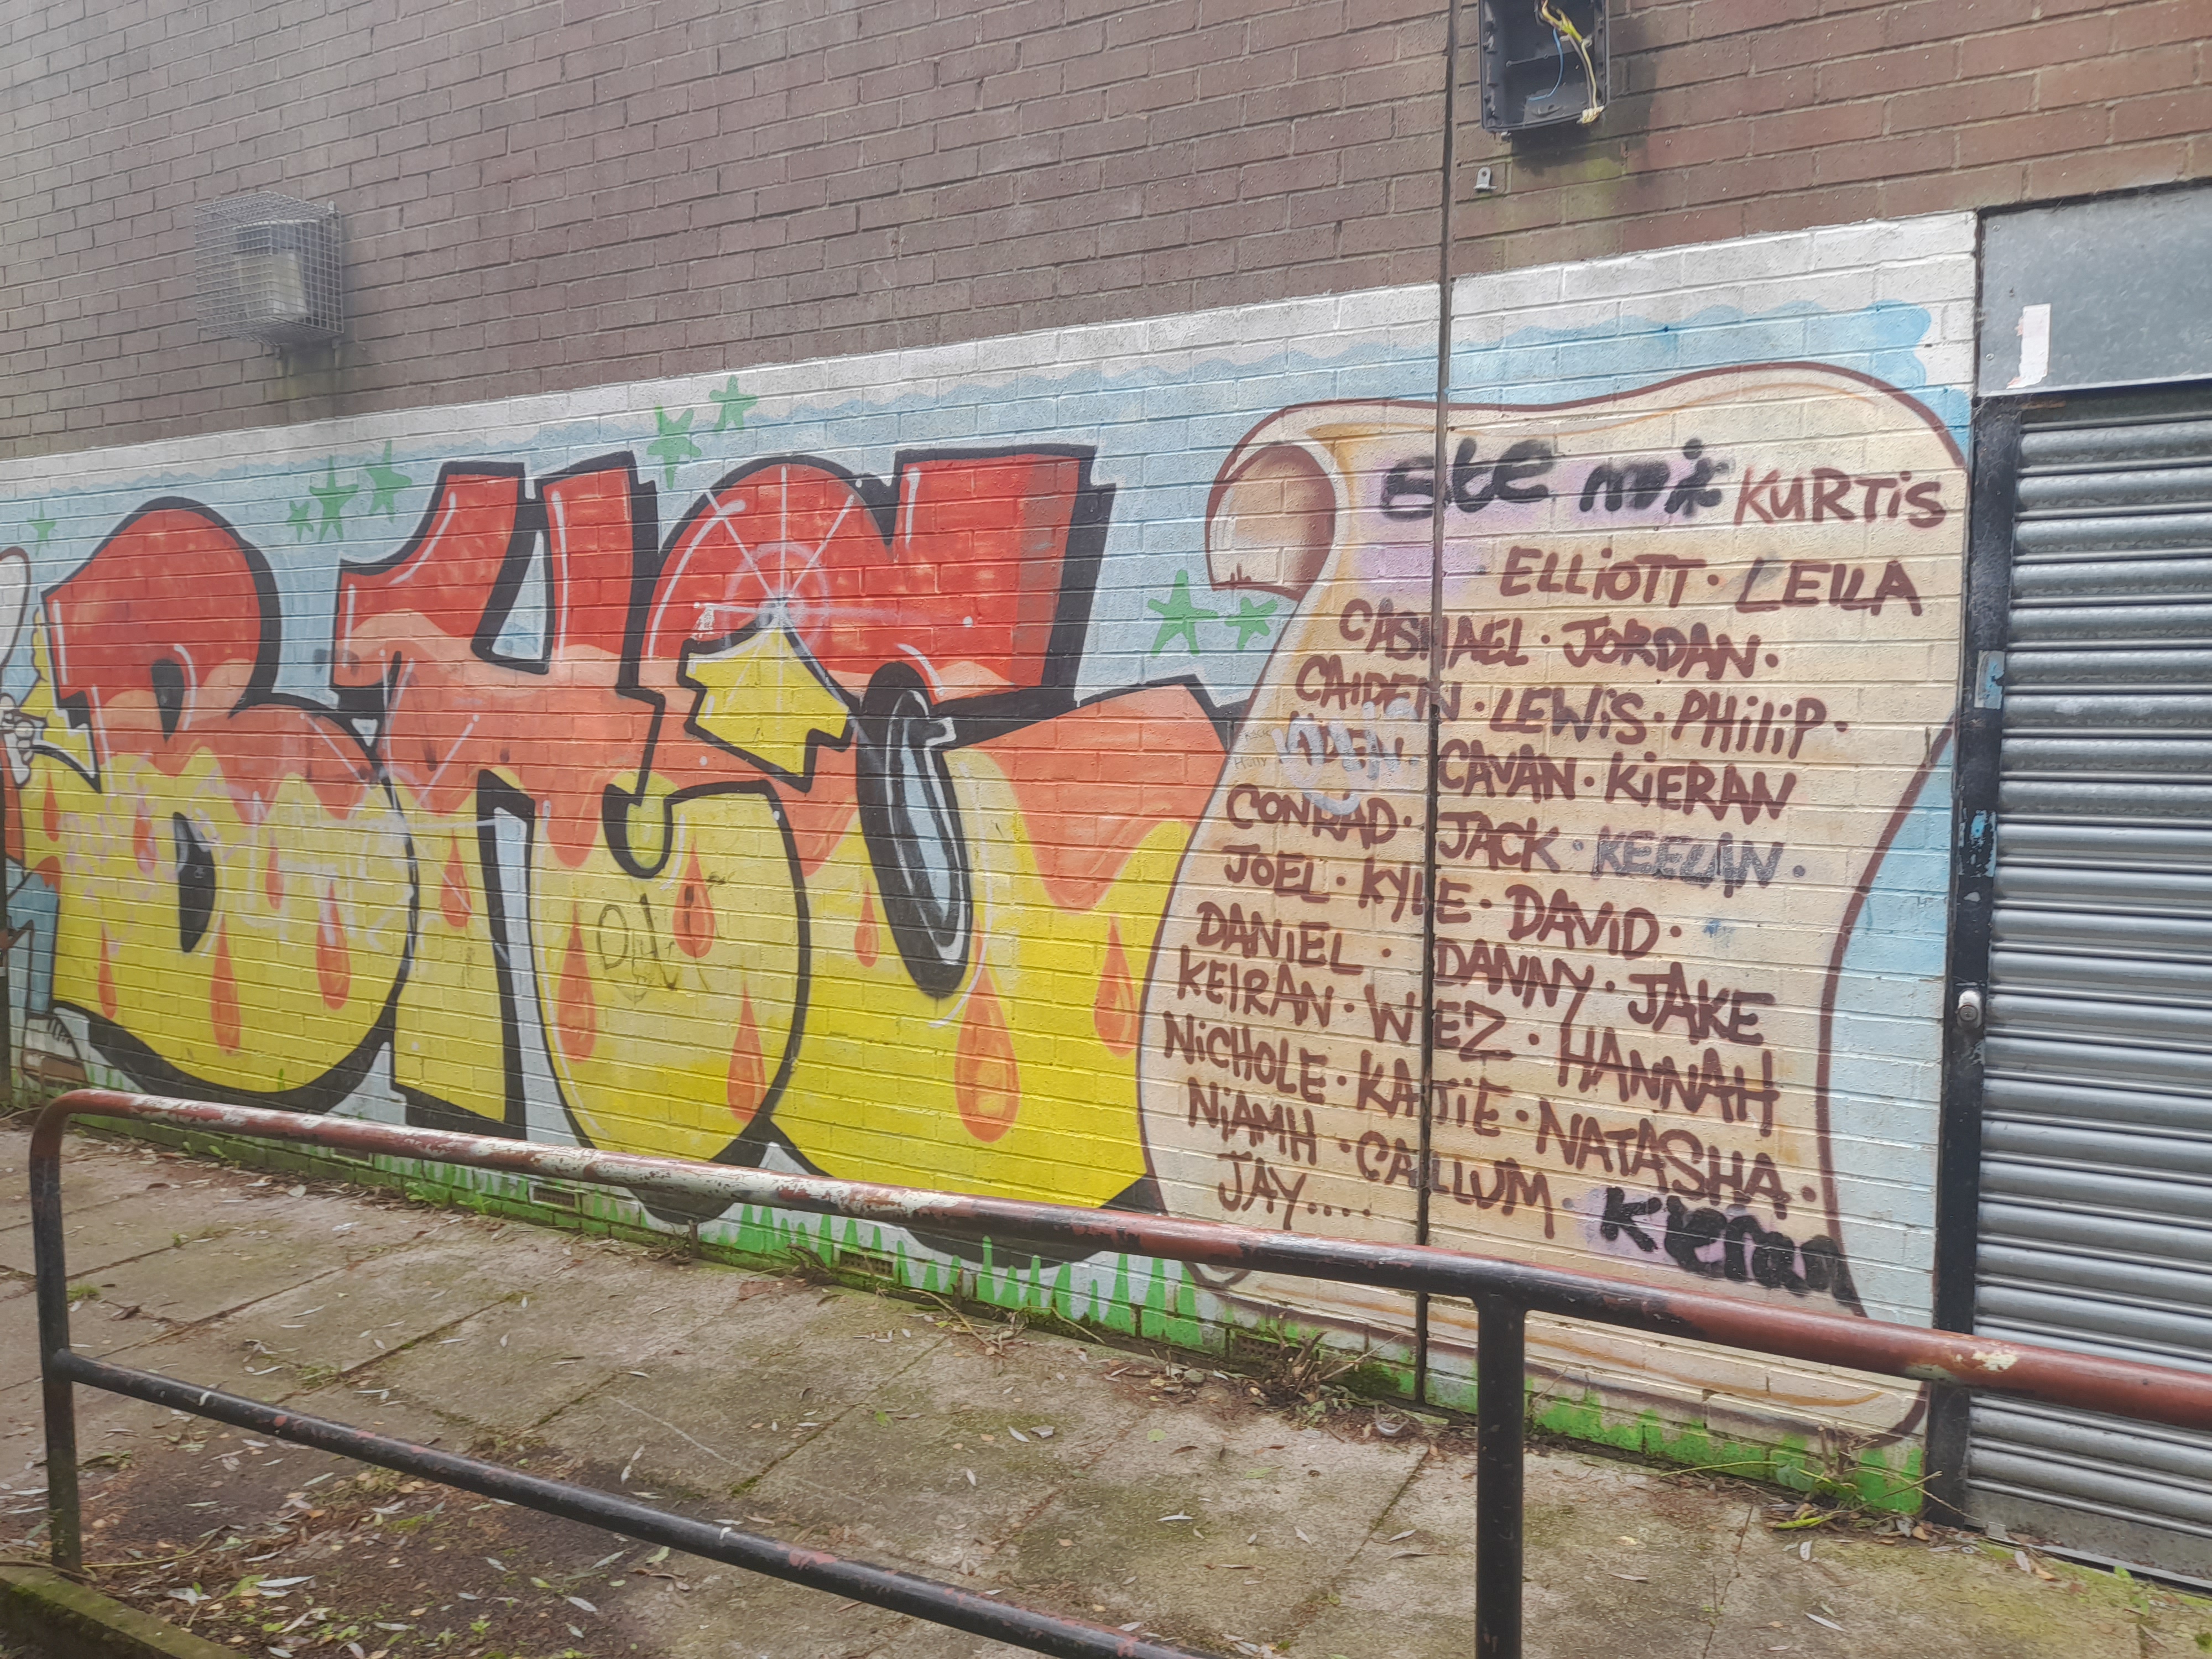 Ste KURTIS
ELLIOTT · LEILA
CASMAEL · JORDAN ·
CAIDEN · LEWIS · PHILIP ·
CAVAN · KIERAN
CONRAD · JACK · KEELAN ·
JOEL · KYLE · DAVID ·
DANIEL · DANNY · JAKE
KEIRAN · WEZ · HANNAH
NICHOLE · KATIE · NATASHA ·
NIAMH · CALLUM · Kieran
JAY....